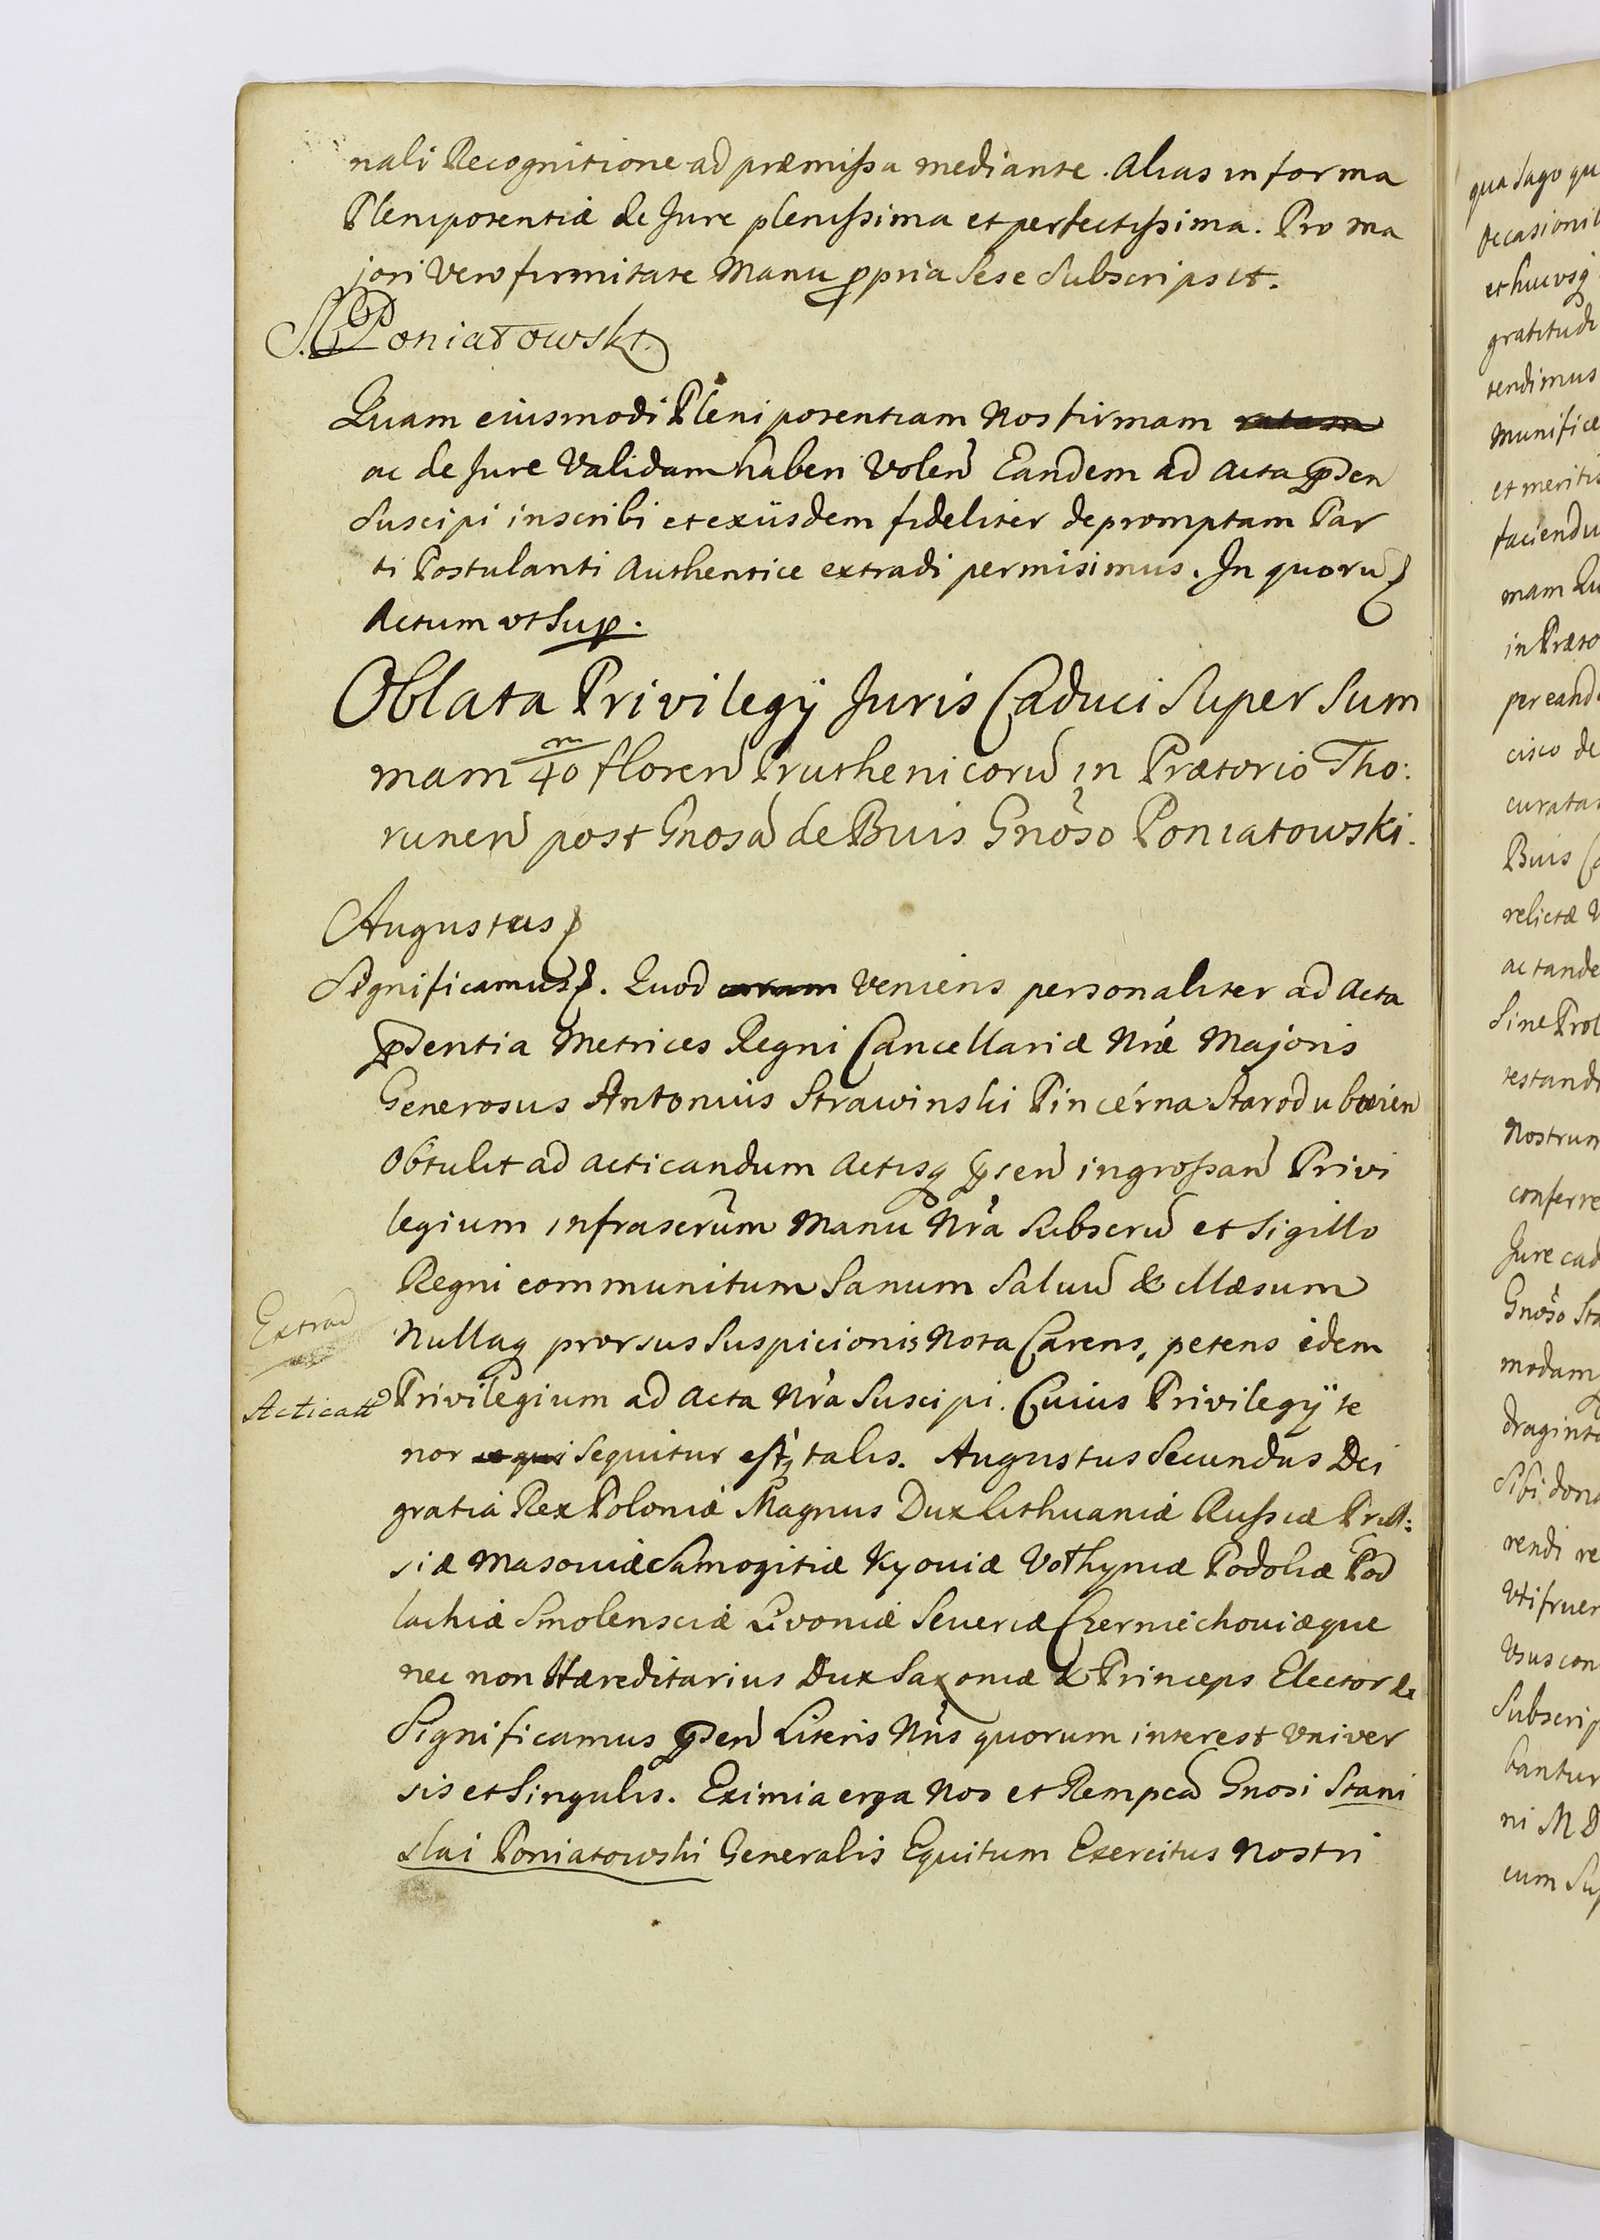 nali Recognitione ad præmissa mediante. Alias in forma
Plenipotentiæ de Jure plenissima et perfectissima. Pro ma
jori vero firmitate Manu ppria sese subscripsit.
S. Poniatowski
Quam eiusmodi Pleni potentiam Nos firmam ratam
ac de Jure Validam haberi Volen Eandem ad Acta pñsen
suscipi inscribi et ex iisdem fideliter depromptam Par
ti Postulanti Authentice extradi permisimus. In quoru
Actum ut sup.
Oblata Privilegÿ Juris Caduci Super Sum
mam 40/m floren Pruthenicoru in Prætorio Tho:
runen post Gnosa de Buis Gnoso Poniatowski.
Augustus
Significamus. Quod coram veniens personaliter ad Acta
pñsentia Metrices Regni Cancellariæ Nræ Majoris
Generosus Antonius Strawinski Pincerna Starodubovien
Obtulit ad acticandum Actisq pñsen ingrossan Privi
legium infrascrum Manu Nra Subscru et Sigillo
Regni communitum Sanum Saluu & illæsum
Nullaq prorsus Suspicionis Nota Carens, petens idem
Extrad
Privilegium ad Acta Nra Suscipi. Cuius Privilegÿ te
Acticatt
nor sequitur estq talis. Augustus Secundus Dei
gratia Rex Poloniæ Magnus Dux Lithuaniæ Russiæ Prus:
siæ Masouiæ Samogitiæ Kyouiæ Volhyniæ Podoliæ Pod
lachiæ Smolensciæ Livoniæ Seueriæ Czerniechouiæque
nec non Hæreditarius Dux Saxoniæ & Princeps Elector &
Significamus pñsen Literis Nris quorum interest Univer
sis et Singulis. Eximia erga Nos et Rempca Gnosi Stani
slai Poniatowski Generalis Equitum Exercitus Nostri
qua sago qu
Occasionib
et hucusq
gratitudi
tendimus
Munifice
et meritis
faciendu
mam Qu
in Præto
per eand
cisco de
curatas
Buis
relictæ
ac tande
Sine Prol
testandi
Nostrum
conferre
Jure cad
Gnoso Sta
modam
draginta
Sibi dona
rendi re
Uti fruen
Usus con
Subscrip
bantur
ni M D
cum Su